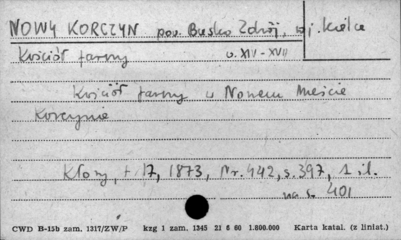 NOWY KORCZYN pow. Busko Zdrój, woj. Kielce
Kościół farny w. XIV-XVII
Kościół farny w Nowem Mieście
Korczynie
Kłosy, t. 17, 1873, Nr. 442, s. 397, 1 il.
na s. 401
CWD B-15b zam. 1317/ZW/P kzg 1 zam. 1345 21 6 60 1.800.000 Karta katal. (z liniat.)